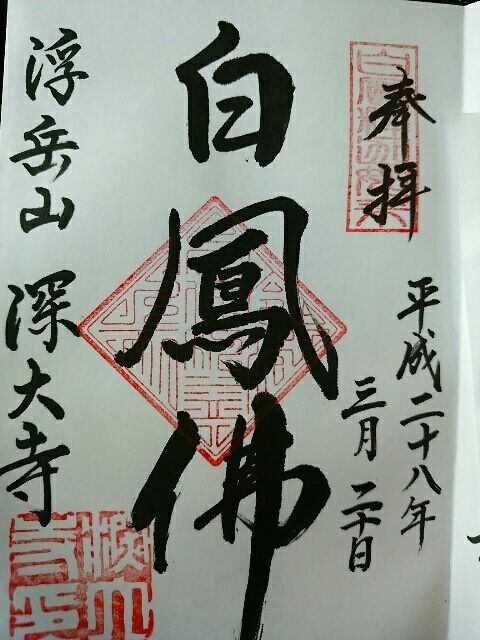 奉拝
平成二十八年
三月二十日
白鳳佛
浮岳山 深大寺